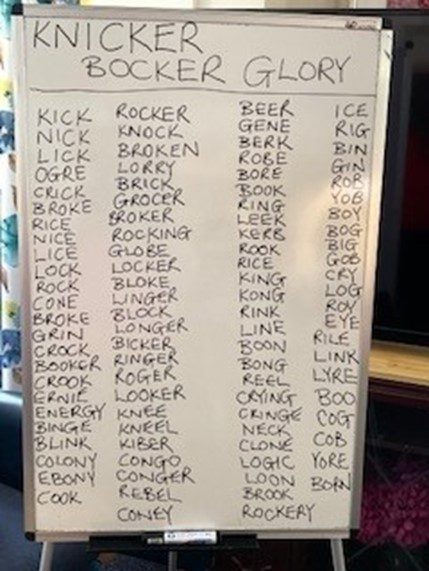 KNICKER
BOCKER GLORY
KICK
NICK
LICK
OGRE
CRICK
BROKE
RICE
NICE
LICE
LOCK
ROCK
CONE
BROKE
GRIN
CROCK
BOOKER
CROOK
ERNIE
ENERGY
BINGE
BLINK
COLONY
EBONY
COOK
ROCKER
KNOCK
BROKEN
LORRY
BRICK
GROCER
BROKER
ROCKING
GLOBE
LOCKER
BLOKE
LINGER
BLOCK
LONGER
BICKER
RINGER
ROGER
LOOKER
KNEE
KNEEL
KIBER
CONGO
CONGER
REBEL
CONEY
BEER
GENE
BERK
ROBE
BORE
BOOK
RING
LEEK
KERB
ROOK
RICE
KING
KONG
RINK
LINE
BOON
BONG
REEL
CRYING
CRINGE
NECK
CLONE
LOGIC
LOON
BROOK
ROCKERY
ICE
RIG
BIN
GIN
ROB
YOB
BOY
BOG
BIG
GOB
CRY
LOG
ROY
EYE
RILE
LINK
LYRE
BOO
COG
COB
YORE
BORN